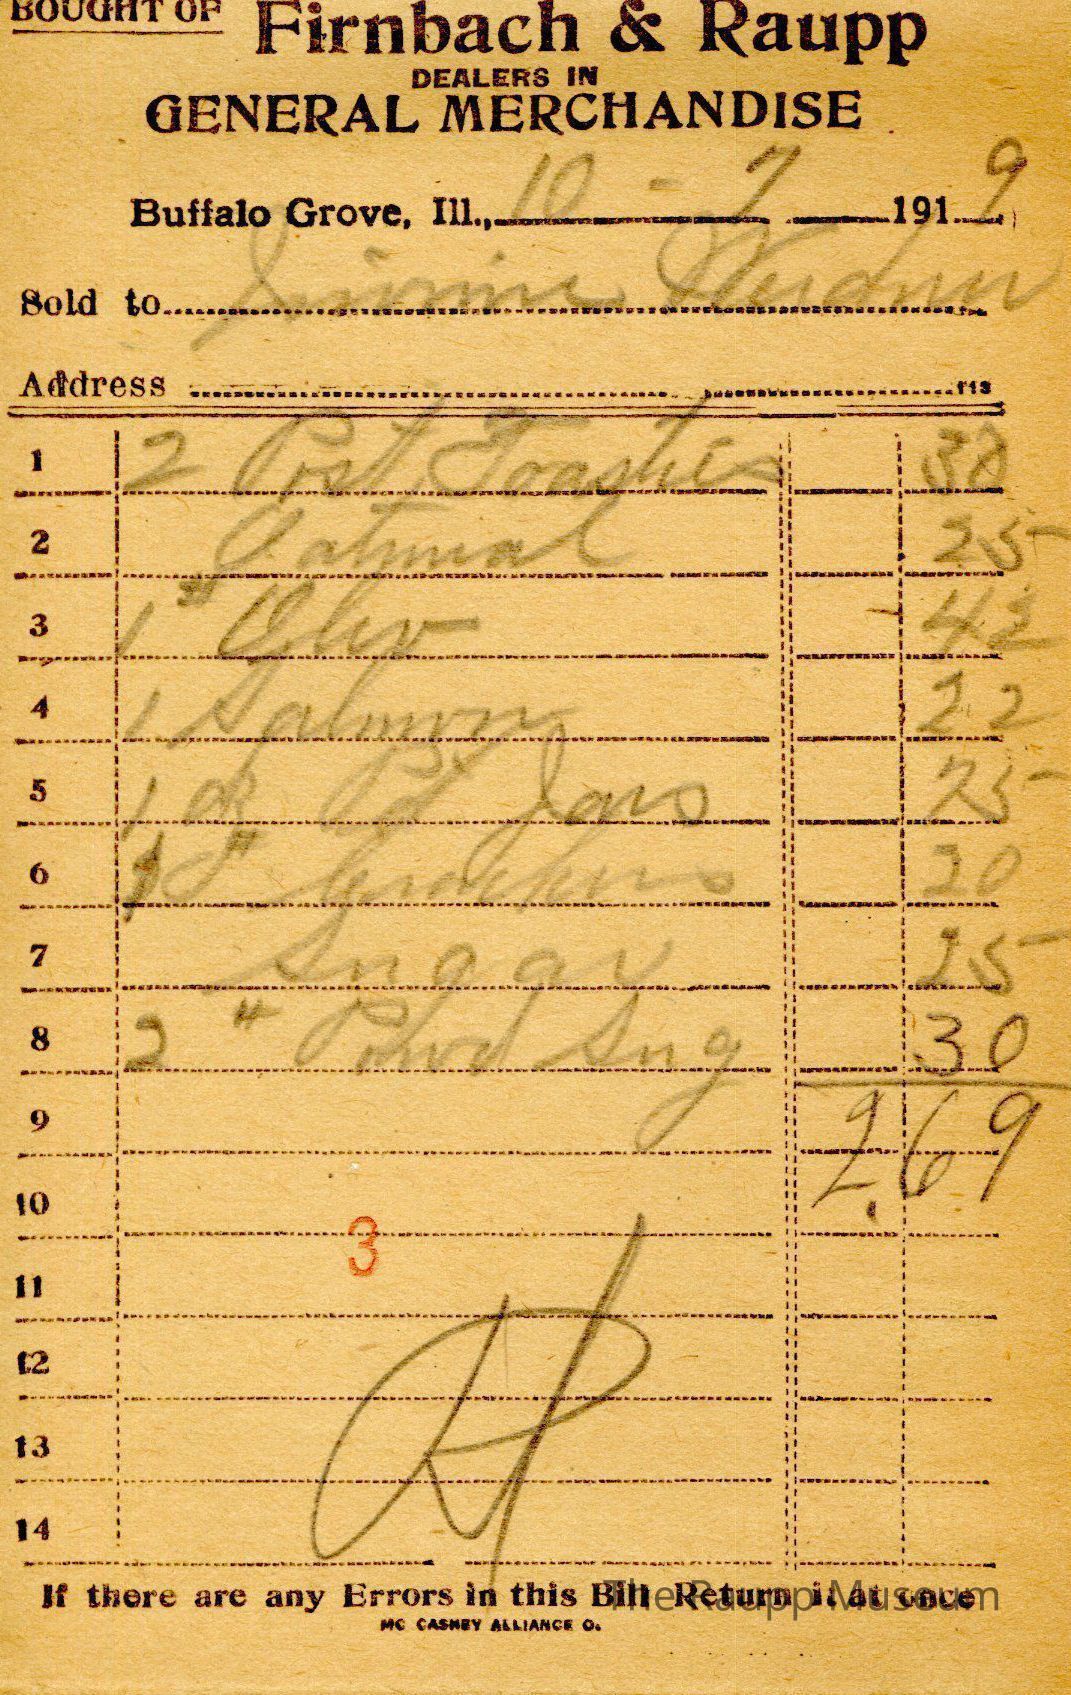 BOUGHT OF Firnbach & Raupp
DEALERS IN
GENERAL MERCHANDISE
Buffalo Grove, Ill., 10 - 7 1919
Sold to Weidner
Address
1 2 Post Toasties 38
2 Oatmeal 25
3 1 # Oleo 42
4 1 Salmon 22
5 1 Jars 25
6 # Crackers 20
7 Sugar 25
8 2 # Powd Sug 30
9 2.69
10
3
11
12
13
14
If there are any Errors in this Bill Return it at once
MC CASKEY ALLIANCE O.
The Raupp Museum